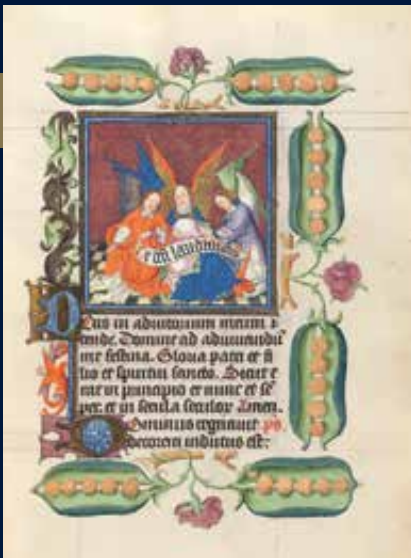 Deus in adiutorium meum i
tende. Domine ad adiuuandū
me festina. Gloria patri et fi
lio et spiritui sancto. Sicut e
rat in principio et nunc et sē
per. et in secula seculor Amen.
Dominus regnauit ps.
decorem indutus est: